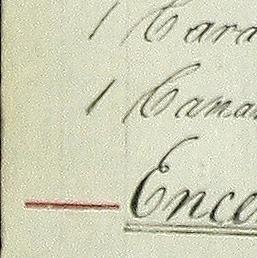 1 Cara
1 Cana
Ence